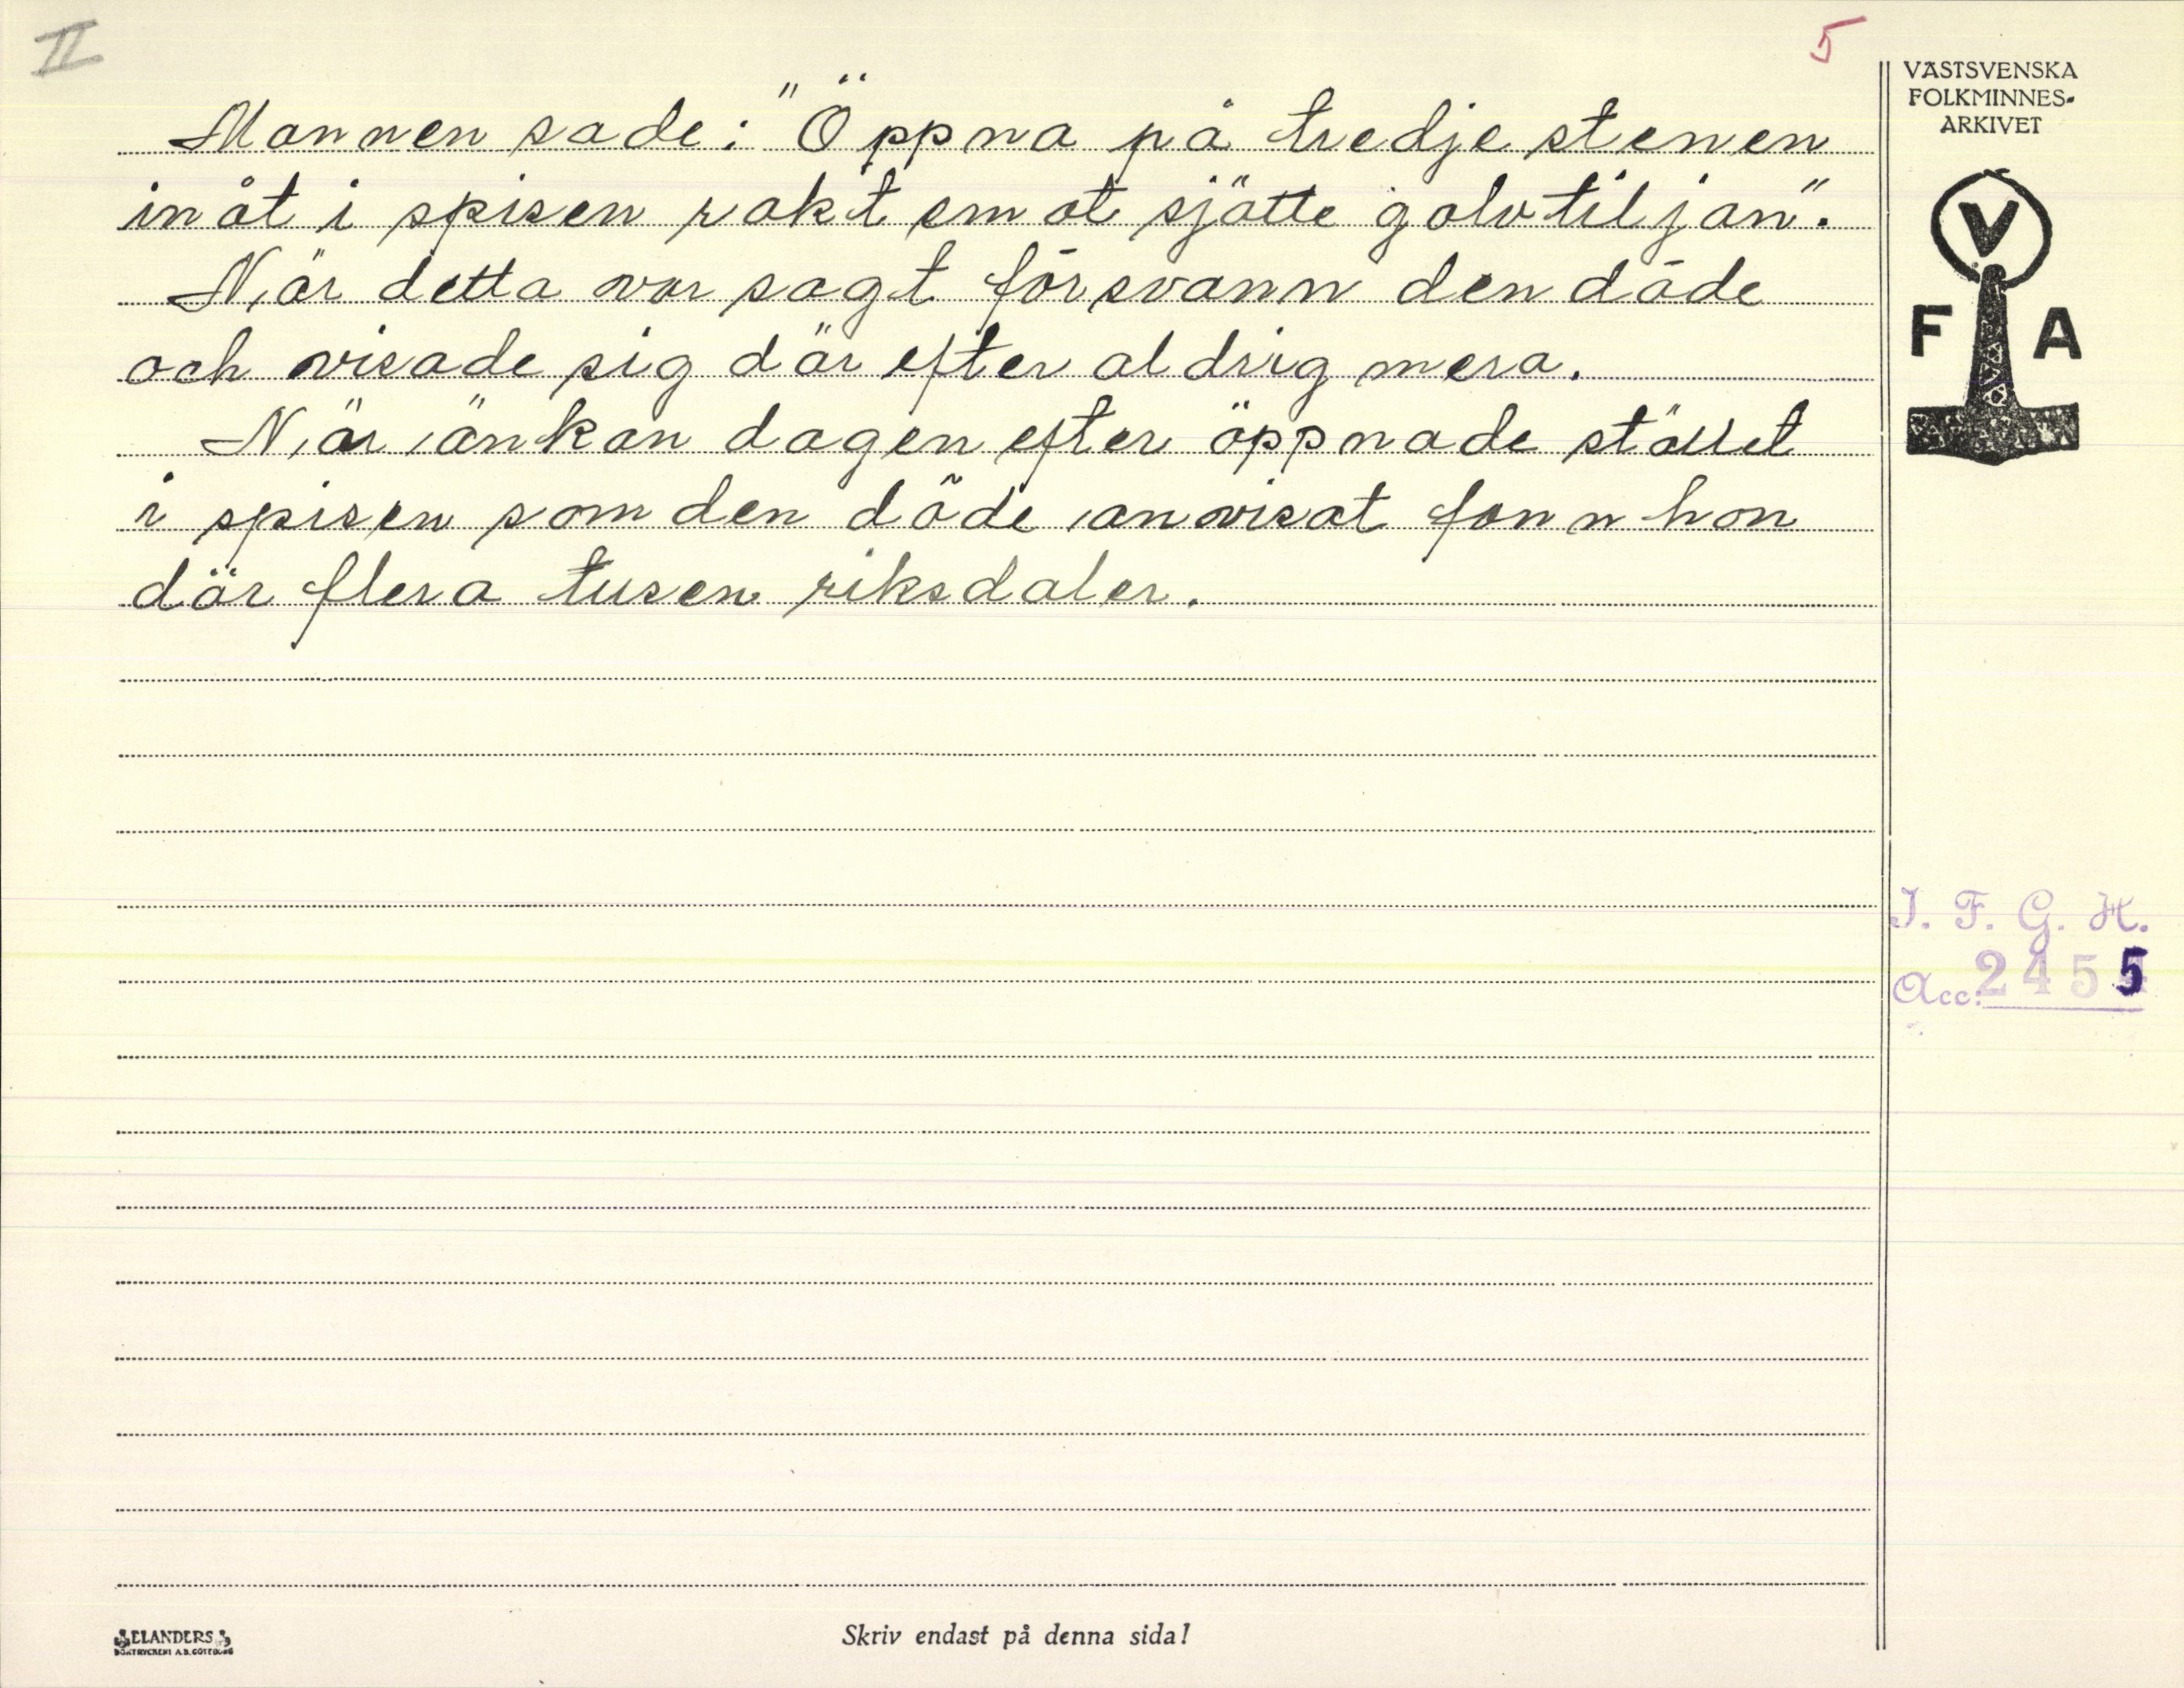 II
5
VÄSTSVENSKA
FOLKMINNES-
ARKIVET
V
F A
Mannen sade: "Öppna på tredje stenen
inåt i spisen rakt emot sjätte golvtiljan".
När detta var sagt försvann den döde
och visade sig därefter aldrig mera.
När änkan dagen efter öppnade stället
i spisen som den döde anvisat fann hon
där flera tusen riksdaler.
I. F. G. H.
Acc. 2455
Skriv endast på denna sida!
ELANDERS
BOKTRYCKERI A.B. GÖTEBORG